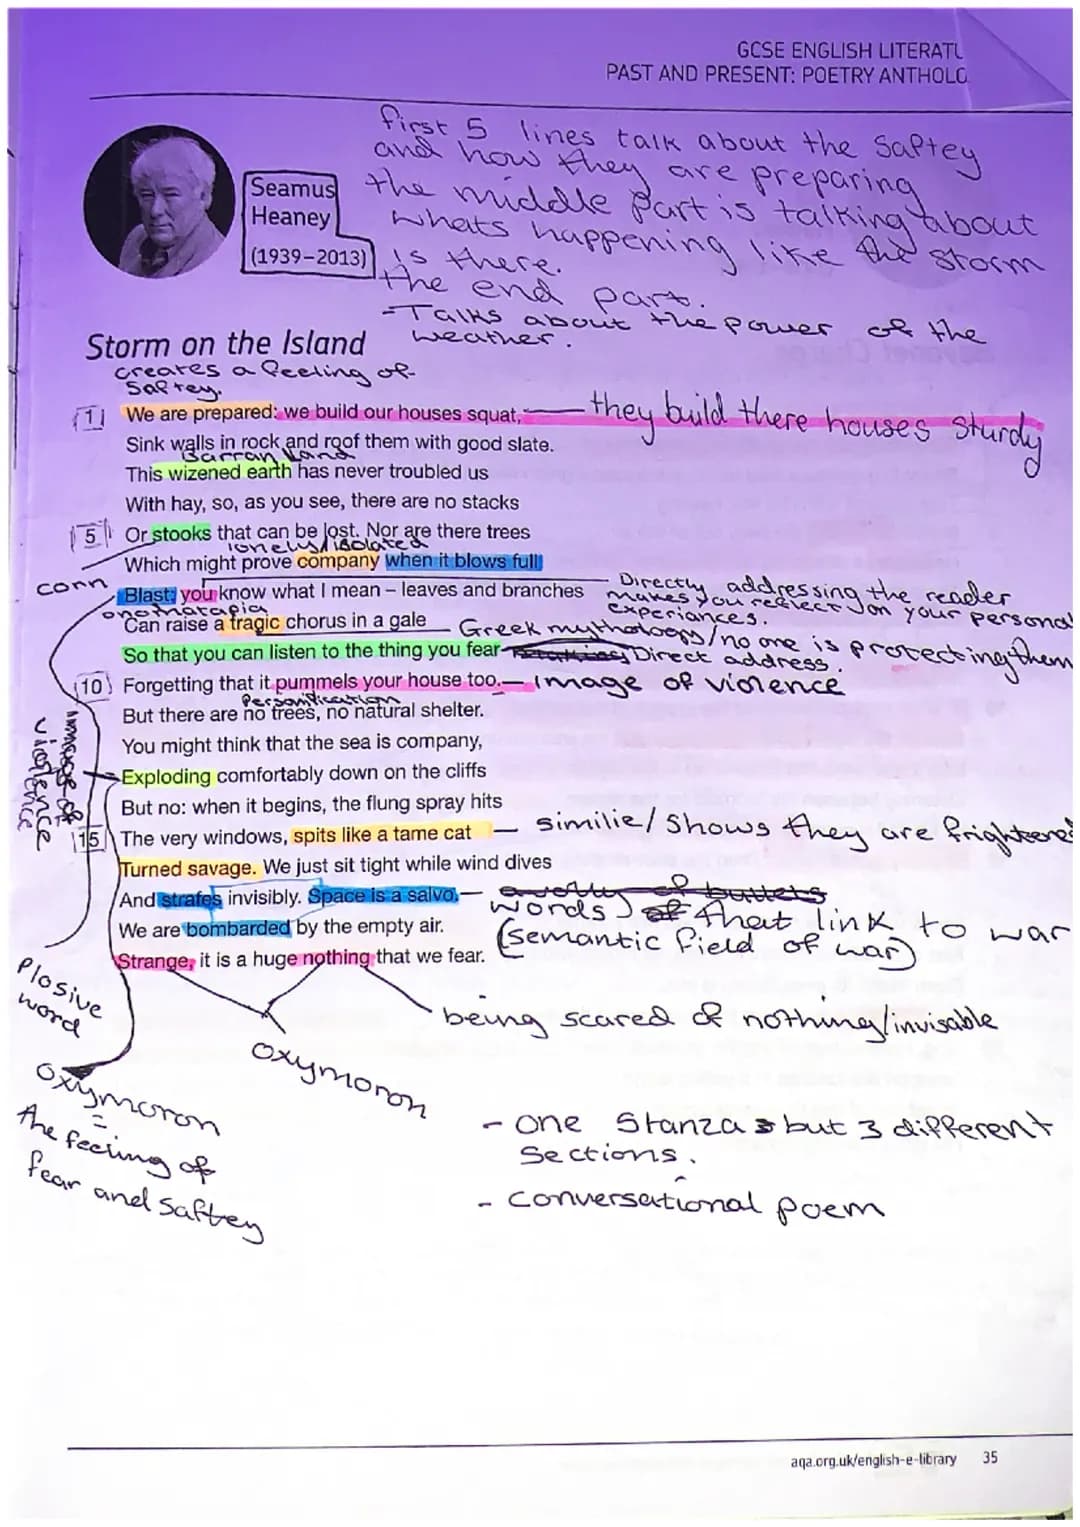 GCSE ENGLISH LITERATU
PAST AND PRESENT: POETRY ANTHOLO
first 5 lines talk about the Saftey
and how they are preparing
the middle part is talking about
whats happening like the storm
is there.
the end part.
-Talks about the power of the
weather.
Seamus
Heaney
(1939–2013)
Storm on the Island
creates a feeling of
Saftey.
1 We are prepared: we build our houses squat, they build there houses sturdy
Sink walls in rock and roof them with good slate.
Barran Land
This wizened earth has never troubled us
With hay, so, as you see, there are no stacks
5 Or stooks that can be lost. Nor are there trees
lonely/isolated
Which might prove company when it blows full
corn
Blast: you know what I mean – leaves and branches
Directly addressing the reader
makes you reelect on your personal
experiances.
onomatapia
Can raise a tragic chorus in a gale
Greek mythology/no one is protecting them
So that you can listen to the thing you fear
Direct address.
10 Forgetting that it pummels your house too. – image of violence
Personification
But there are no trees, no natural shelter.
You might think that the sea is company,
Exploding comfortably down on the cliffs
But no: when it begins, the flung spray hits
immage of
violence
15 The very windows, spits like a tame cat – similie/Shows they are frightened
Turned savage. We just sit tight while wind dives
And strafes invisibly. Space is a salvo, –
We are bombarded by the empty air.
Strange, it is a huge nothing that we fear.
words that link to war
(semantic field of war)
Plosive
word
being scared of nothing/invisable
oxymoron
oxymoron
=
the feeling of
fear and saftey
- one Stanza but 3 different
Sections.
- conversational poem
aqa.org.uk/english-e-library 35